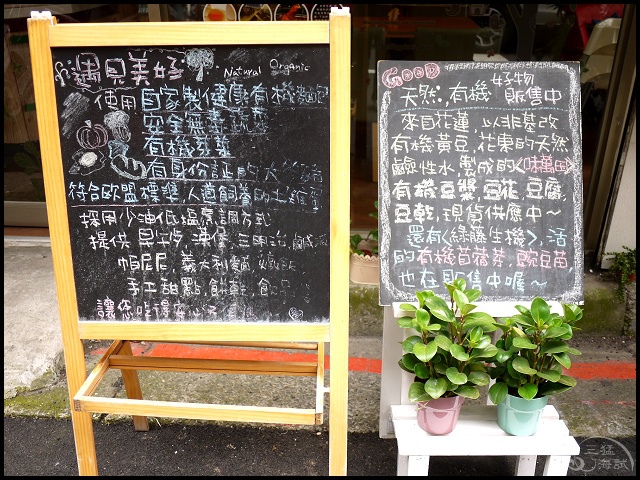 遇見美好
Natural Organic
使用自家製健康有機麵包
安全無毒蔬菜
有機蔬菜
有身份證的
符合歐盟標準人道飼養的土雞蛋
採用少油低溫烹調方式
提供 早午歺,漢堡,三明治,鹹派
帕尼尼,義大利麵,燉飯
手工甜點,餅乾,飲品
讓您吃得安心
GOOD
好物
天然,有機 販售中
來自花蓮,以非基改
有機黃豆,花東的天然
鹼性水,製成的<味萬田>
有機豆漿,豆花,豆腐,
豆乾,現貨供應中~
還有<綠藤生機>,活
的有機苜蓿芽,豌豆苗,
也在販售中喔~
三猛
海試